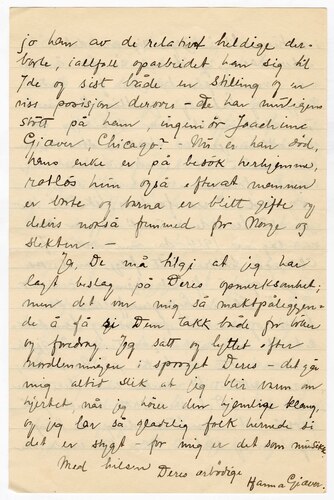 jo han av de relativt heldige der-
borte, iallfall oparbeidet han sig til
syvende og sist både en stilling og en
viss posisjon derovre - De har muligens
støtt på ham, ingeniør Joachim
Giæver, Chicago? - Nu er han død,
hans enke er på besøk herhjemme,
rotløs hun også efterat mannen
er borte og barna er blitt gifte og
delvis nokså fremmed for Norge og
slekten. -
Ja, De må tilgi at jeg har
lagt beslag på Deres opmerksomhet;
men det var mig så maktpåliggen-
de å få gi Dem takk både for boken
og foredrag. Jeg satt og lyttet efter
nordlenningen i sproget Deres - det går
mig altid slik at jeg blir varm om
hjertet, når jeg hører den hjemlige klang,
og jeg lar så gladelig folk berede si
det er stygt - for mig er det som musikk.
Med hilsen Deres ærbødige
Hanna Giæver.